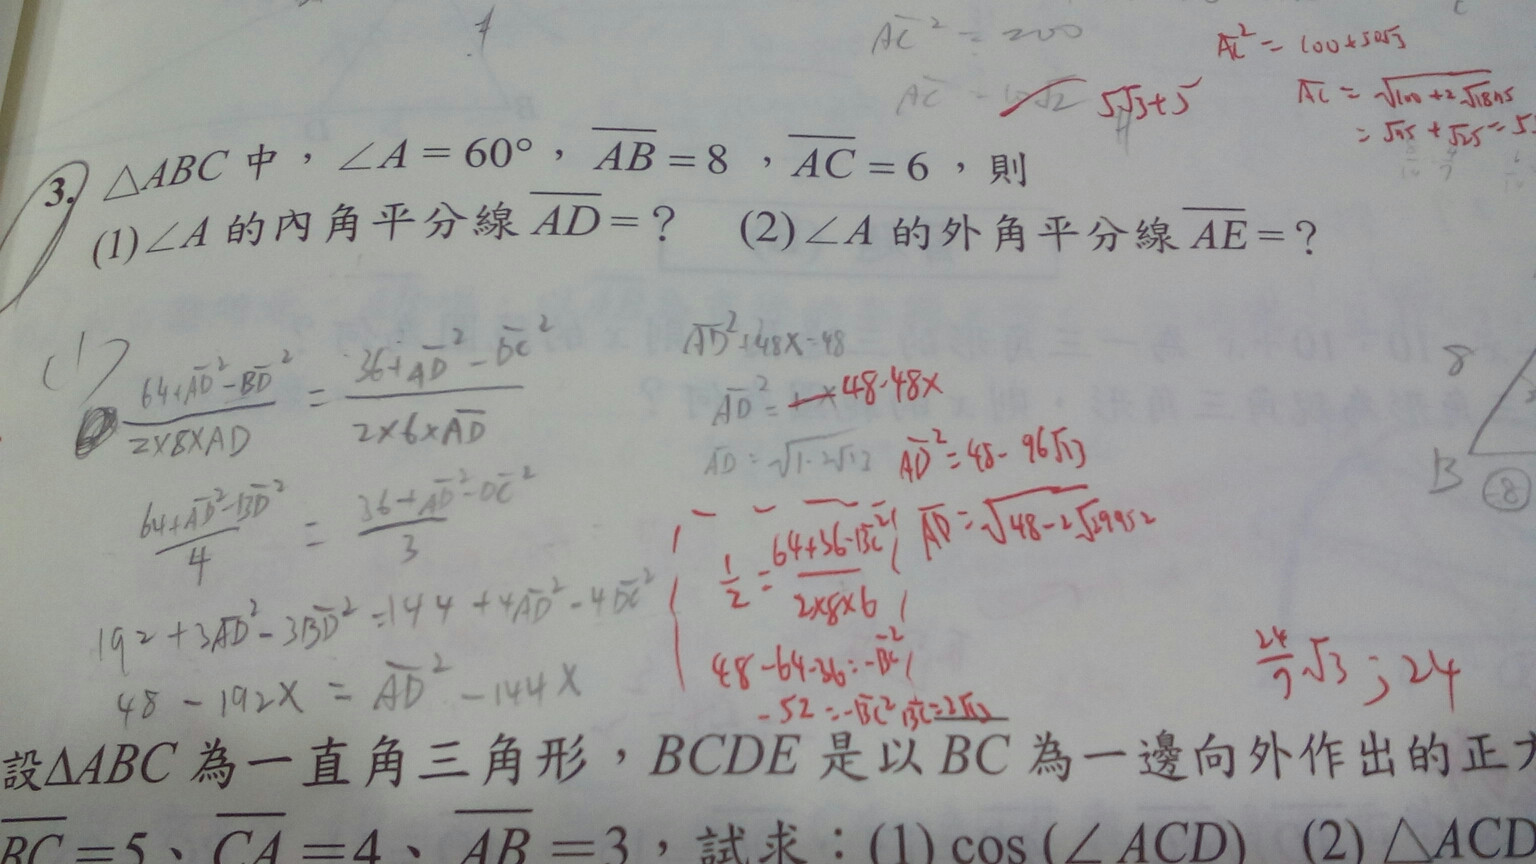 AC² = 200
AC = 10√2 5√3+5
AC² = 100+50√3
AC = √100+2√1875
= √75 + √25 = 5
3. △ABC 中，∠A = 60°，AB = 8，AC = 6，則
(1)∠A 的內角平分線 AD = ？ (2)∠A 的外角平分線 AE = ？
(1)
64+AD²-BD² / 2×8×AD = 36+AD²-DC² / 2×6×AD
64+AD²-BD² / 4 = 36+AD²-DC² / 3
192+3AD²-3BD²=144+4AD²-4DC²
48-192x = AD²-144x
AD²+48x=48
AD² = 48-48x
AD = √1-2√13
AD²=48-96√13
AD = √48-2√29952
1/2 = 64+36-BC² / 2×8×6
48-64-36=-BC²
-52=-BC² BC=2√13
8
B
8
24/7 √3 ; 24
設△ABC 為一直角三角形，BCDE 是以 BC 為一邊向外作出的正
BC = 5、CA = 4、AB = 3，試求：(1) cos (∠ACD) (2) △ACD